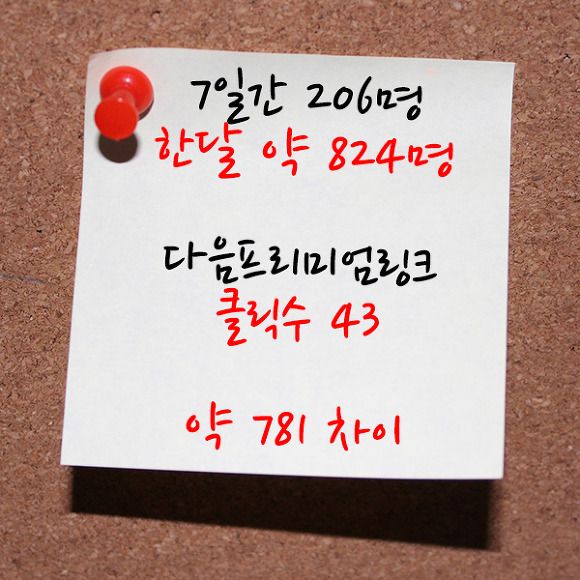 7일간 206명
한달 약 824명
다음프리미엄링크
클릭수 43
약 781 차이